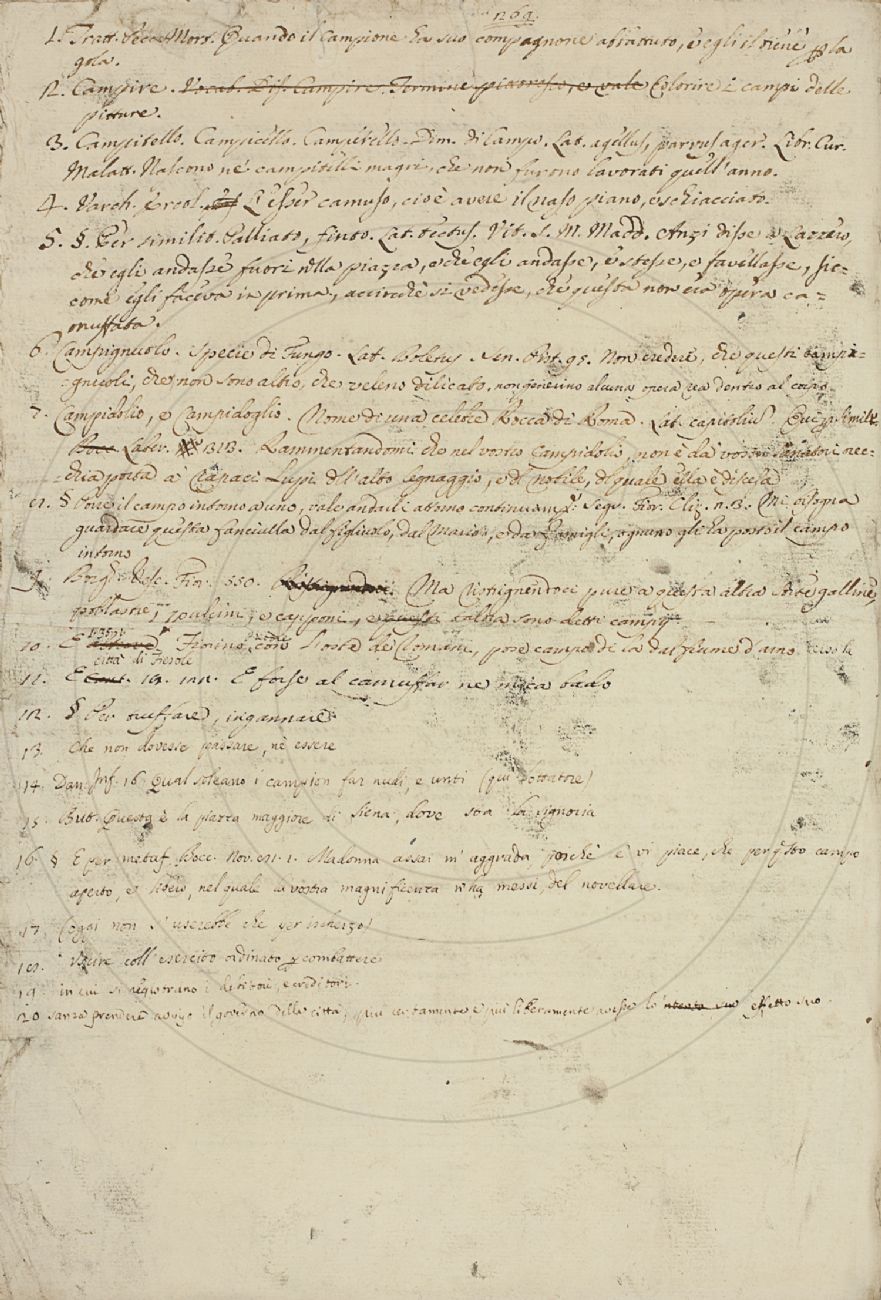 169.
1. Tratt. Pecc. Mort. Quando il Campione ha suo compagnone abbattuto, e egli il tiene p la
gola.
2. Campire. Vocab. Dis. Campire. Termine pittoresco, e vale Colorire i campi delle
pitture.
3. Campitello. Campicello. Campetello. Dim. di Campo. Lat. agellus, parvus ager. Libr. Cur.
Malatt. Nascono ne' campitelli magri, che non furono lavorati quell'anno.
4. Varch. Ercol. L'esser camuso, cioè avere il naso piano, e schiacciato.
5. §. Per similit. Palliato, finto. Lat. tectus. Vit. S. M. Madd. Anzi disse a Lazzero,
che egli andasse fuori nlla piazza, e che egli andasse, e stesse, e favellasse, sic=
come egli faceva in prima, acciocchè si vedesse, che questa non era opera ca=
muffata.
6. Campignuolo. Specie di Fungo. Lat. boletus. Sen. Pist. 95. Non credere, che questi campi=
=gnuoli, che non sono altro, che veleno dilicato, non generino alcuna opera rea dentro al corpo.
7. Campidolio, e Campidoglio. Nome di una celebre Rocca di Roma. Lat. capitoliu
Labir. 313. Rammentandomi che nel vostro Campidolio, non è da' vostri Senatori nec=
chia porta a' rapaci Lupi dll'alto legnaggio, e dl nobile, dl quale ella è discesa
8. § Porre il campo intorno a uno, vale andarli attorno continuam. Segr. Fior. Cliz. n. 13. Mi bisogna
guardare questa fanciulla dal figliuolo, dal Marito, e da famigli, ognuno gli ha posto il campo
intorno
9. Borg. Vesc. Fior. 550. Ma ristrignendoci pure a questa altra sorte galline,
pollastre, pulcini, e capponi, e talora sono detti campi
10. E Fiorino con l'oste de' Romani, pose campo di là dal fiume d'Arno verso la
città di Fiesole
11. E cant. 19. E forse al camuffar ne mica bado
12. § Per truffare, ingannare
13. Che non dovesse passare, nè essere
14. Dan. Inf. 16. Qual soleano i campion far nudi, e unti (qui lottatore)
15. But. Questa è la piazza maggiore di Siena, dove sta la signoria
16. § E per metaf. Bocc. Nov. 81. 1. Madonna assai m'aggrada, poichè e' vi piace, che per qsto campo
aperto, e libero, nel quale la vostra magnificenza n'ha messi, del novellare.
17. (oggi non s'userebbe che per ischerzo)
18. Uscire coll'esercito ordinato p combattere
19. in cui si registrano i debitori, e creditori.
20 sanza prendere avviso il governo della città, più certamente e più liberamente avesse lo ntento suo effetto suo.